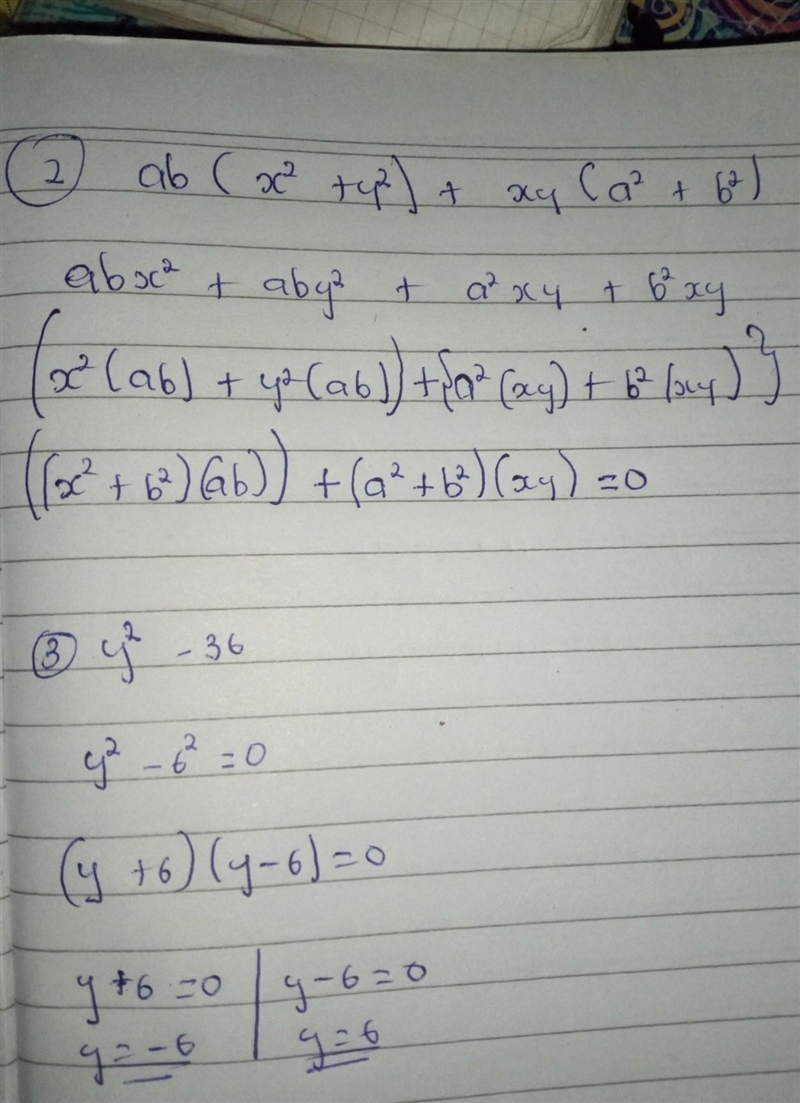 2 ab (x² + y²) + xy (a² + b²)
abx² + aby² + a²xy + b²xy
(x²(ab) + y²(ab)) + {a²(xy) + b²(xy)}
((x² + b²)(ab)) + (a² + b²)(xy) = 0
3 y² - 36
y² - 6² = 0
(y + 6)(y - 6) = 0
y + 6 = 0 | y - 6 = 0
y = -6 | y = 6